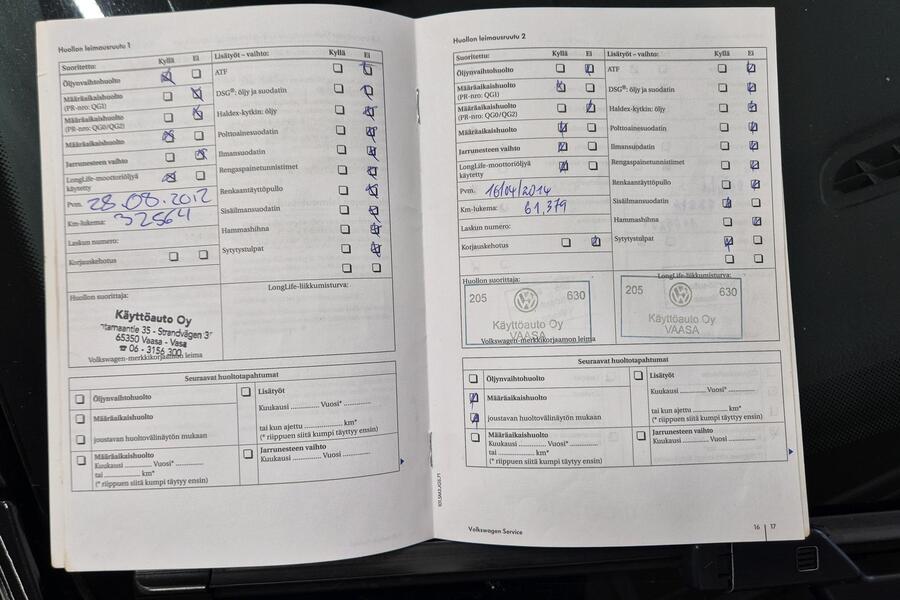 Huollon leimausruutu 1
Suoritettu: Kyllä Ei
Öljynvaihtohuolto
Määräaikaishuolto
(PR-nro: QG1)
Määräaikaishuolto
(PR-nro: QG0/QG2)
Määräaikaishuolto
Jarrunesteen vaihto
LongLife-moottoriöljyä
käytetty
Pvm. 28.08.2012
Km-lukema: 32564
Laskun numero:
Korjauskehotus
Lisätyöt – vaihto: Kyllä Ei
ATF
DSG®: öljy ja suodatin
Haldex-kytkin: öljy
Polttoainesuodatin
Ilmansuodatin
Rengaspainetunnistimet
Renkaantäyttöpullo
Sisäilmansuodatin
Hammashihna
Sytytystulpat
Huollon suorittaja:
Käyttöauto Oy
35 - Strandvägen
65350 Vaasa - Vasa
☎ 06 - 3156 300
Volkswagen-merkkikorjaamon leima
LongLife-liikkumisturva:
Seuraavat huoltotapahtumat
Öljynvaihtohuolto
Määräaikaishuolto
joustavan huoltovälinäytön mukaan
Määräaikaishuolto
Kuukausi ............ Vuosi* ............
tai ............ km*
(* riippuen siitä kumpi täyttyy ensin)
Lisätyöt
Kuukausi ............ Vuosi* ............
tai kun ajettu ............ km*
(* riippuen siitä kumpi täyttyy ensin)
Jarrunesteen vaihto
Kuukausi ............ Vuosi ............
Huollon leimausruutu 2
Suoritettu: Kyllä Ei
Öljynvaihtohuolto
Määräaikaishuolto
(PR-nro: QG1)
Määräaikaishuolto
(PR-nro: QG0/QG2)
Määräaikaishuolto
Jarrunesteen vaihto
LongLife-moottoriöljyä
käytetty
Pvm. 16/04/2014
Km-lukema: 61,379
Laskun numero:
Korjauskehotus
Lisätyöt – vaihto: Kyllä Ei
ATF
DSG®: öljy ja suodatin
Haldex-kytkin: öljy
Polttoainesuodatin
Ilmansuodatin
Rengaspainetunnistimet
Renkaantäyttöpullo
Sisäilmansuodatin
Hammashihna
Sytytystulpat
Huollon suorittaja:
205 630
Käyttöauto Oy
VAASA
Volkswagen-merkkikorjaamon leima
LongLife-liikkumisturva:
205 630
Käyttöauto Oy
VAASA
Seuraavat huoltotapahtumat
Öljynvaihtohuolto
Määräaikaishuolto
joustavan huoltovälinäytön mukaan
Määräaikaishuolto
Kuukausi ............ Vuosi* ............
tai ............ km*
(* riippuen siitä kumpi täyttyy ensin)
Lisätyöt
Kuukausi ............ Vuosi* ............
tai kun ajettu ............ km*
(* riippuen siitä kumpi täyttyy ensin)
Jarrunesteen vaihto
Kuukausi ............ Vuosi ............
Volkswagen Service
16 | 17